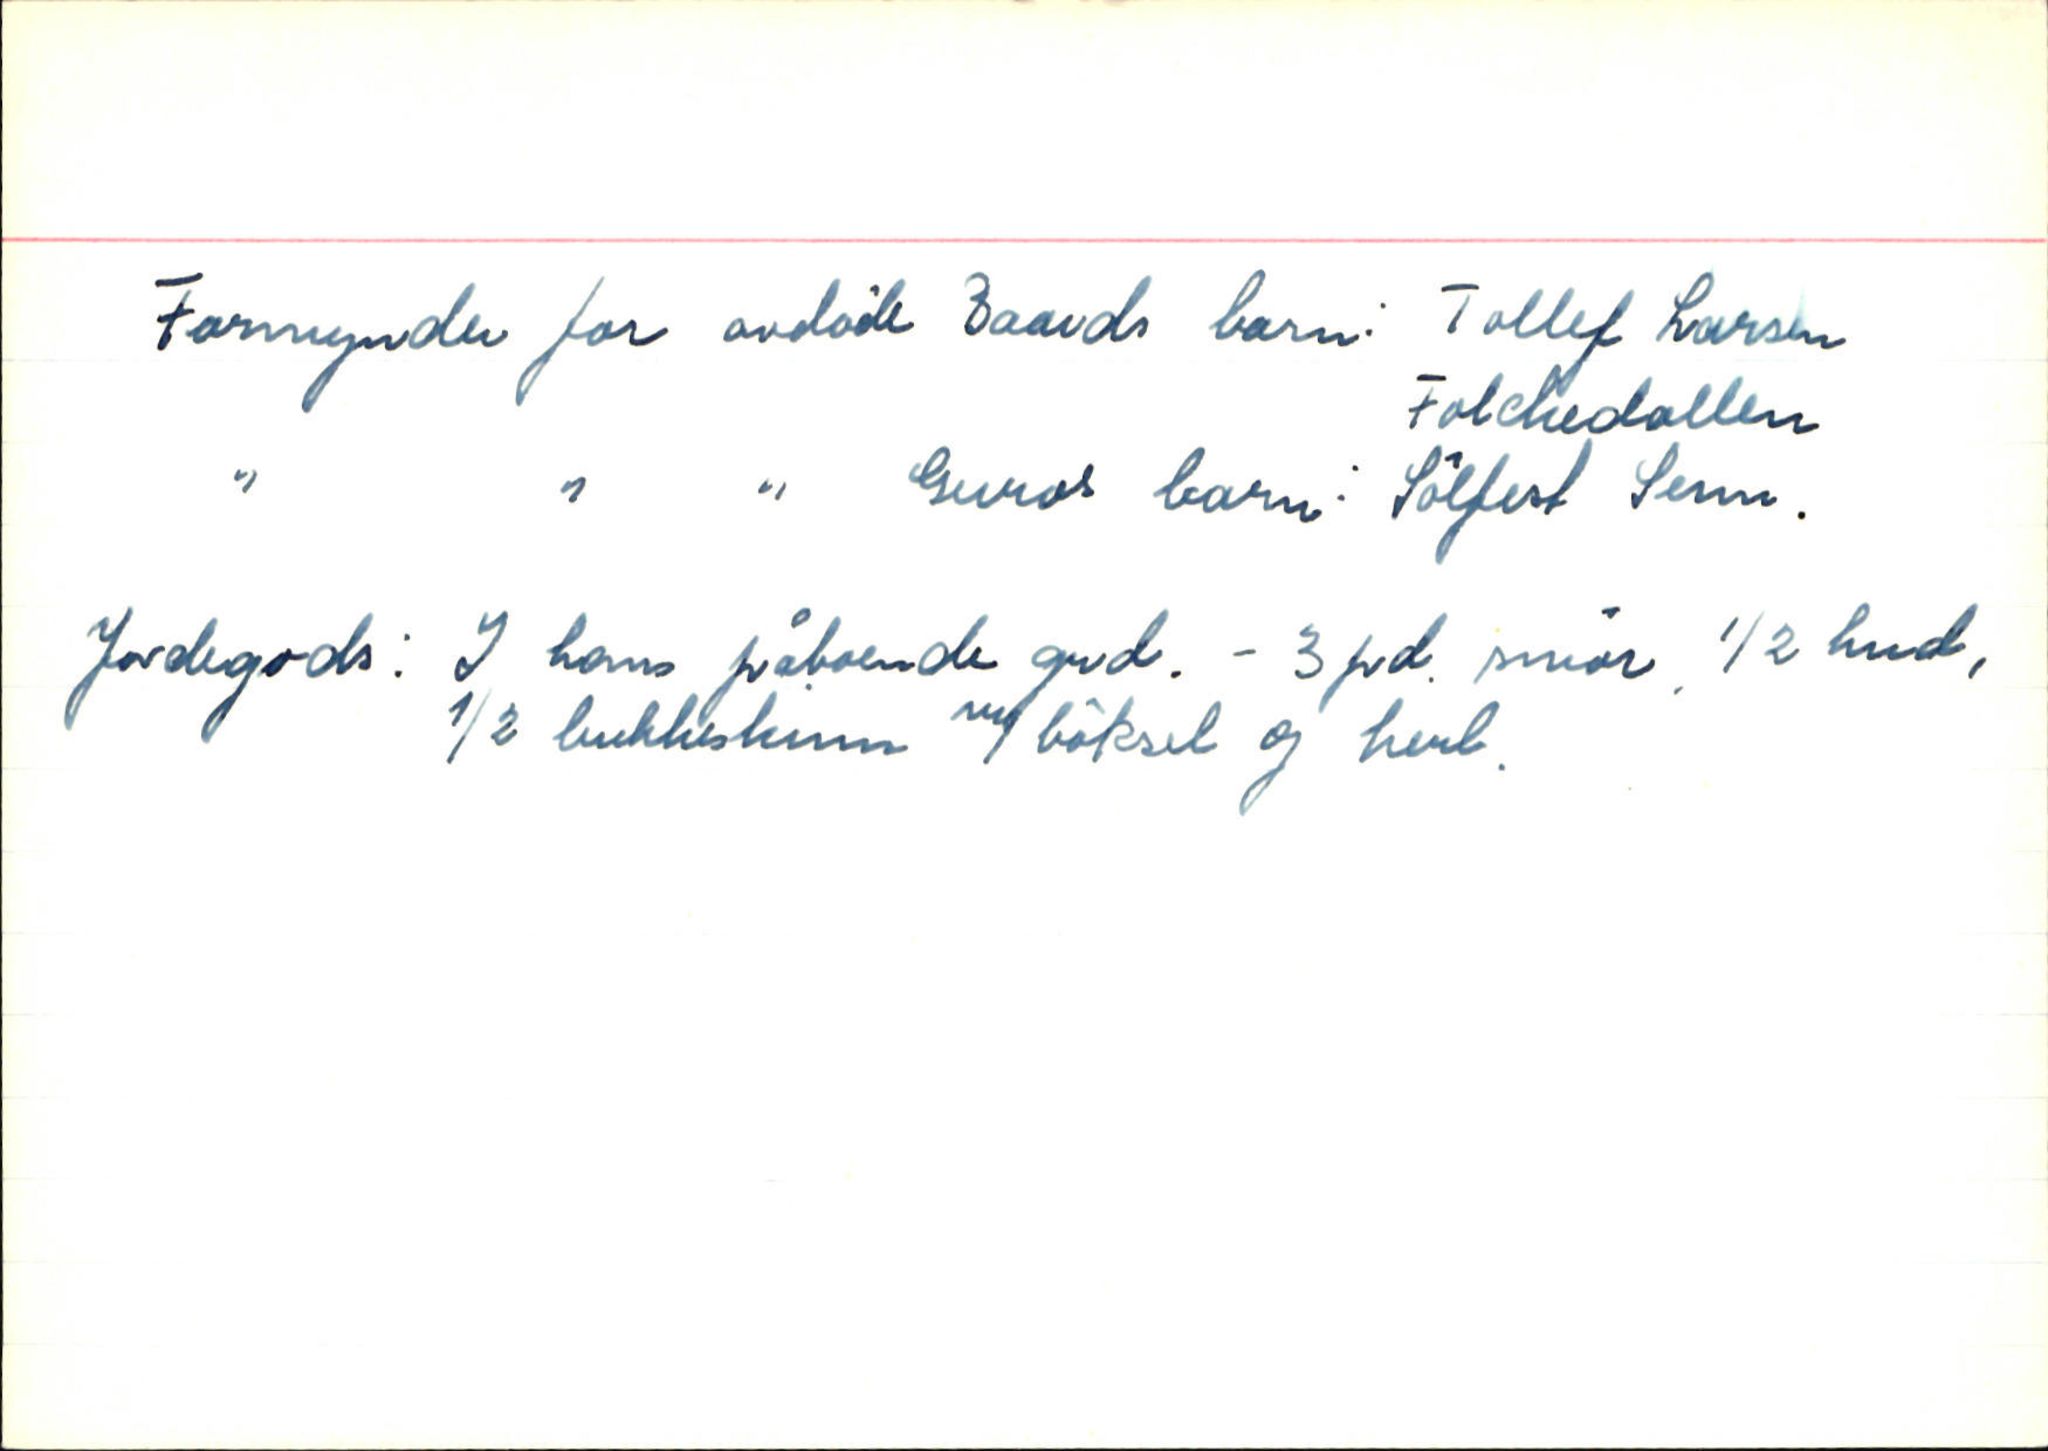 Formynder for avdöde Baards barn: Tollef Larsen
Folchedallen
" " " Guros barn: Sölfest Senn.
Jordegods: I hans påboende grd. - 3 pd. smör, 1/2 hud,
1/2 bukkeskinn m/ böksel og herl.